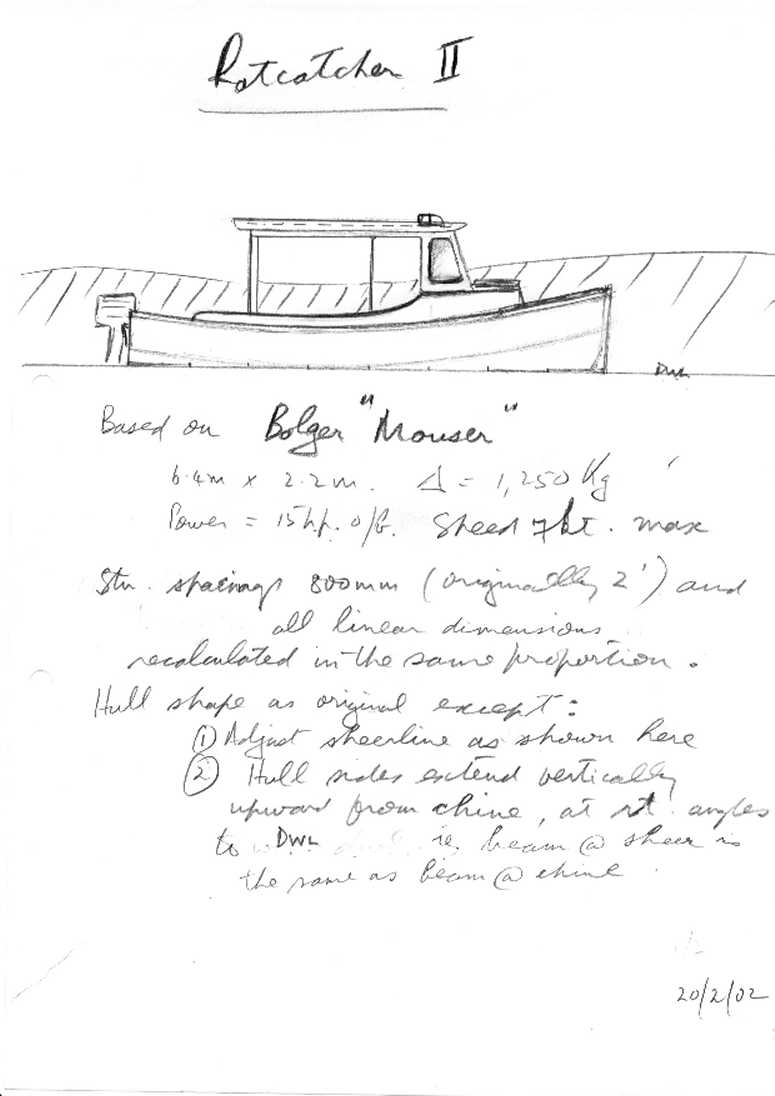 Ratcatcher II
DWL
Based on Bolger "Mouser"
6.4m x 2.2m. Δ = 1,250 Kg
Power = 15 h.p. o/b. Speed 7 kt. max
Stn. spacings 800mm (originally 2') and
all linear dimensions
recalculated in the same proportion.
Hull shape as original except:
① Adjust sheerline as shown here
② Hull sides extend vertically
upward from chine, at rt. angles
to DWL ie. beam @ sheer is
the same as beam @ chine.
20/2/02